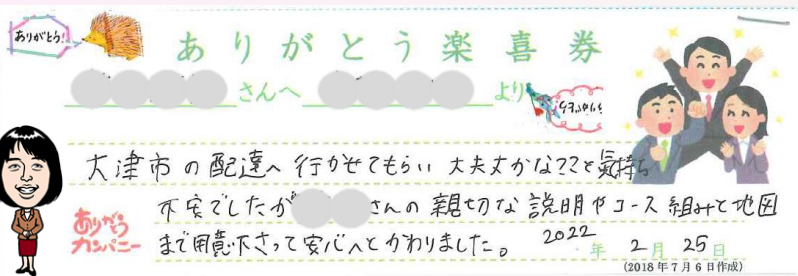 ありがとう!
ありがとう楽喜券
さんへ より
大津市の配達へ行かせてもらい大丈夫かな??と気持ち
不安でしたが さんの親切な説明やコース組みと地図
まで用意下さって安心へとかわりました。
2022年2月25日
ありがとうカンパニー
(2018年7月6日作成)